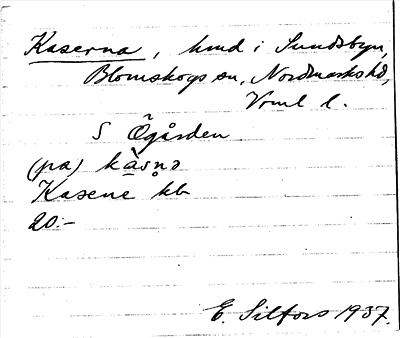 Kaserna, hmd i Sundsbyn,
Blomskogs sn, Nordmarks hd,
Vrml l.
S Ögården
(pa) kåsnə
Kasene kb
20:-
E. Silfors 1937.